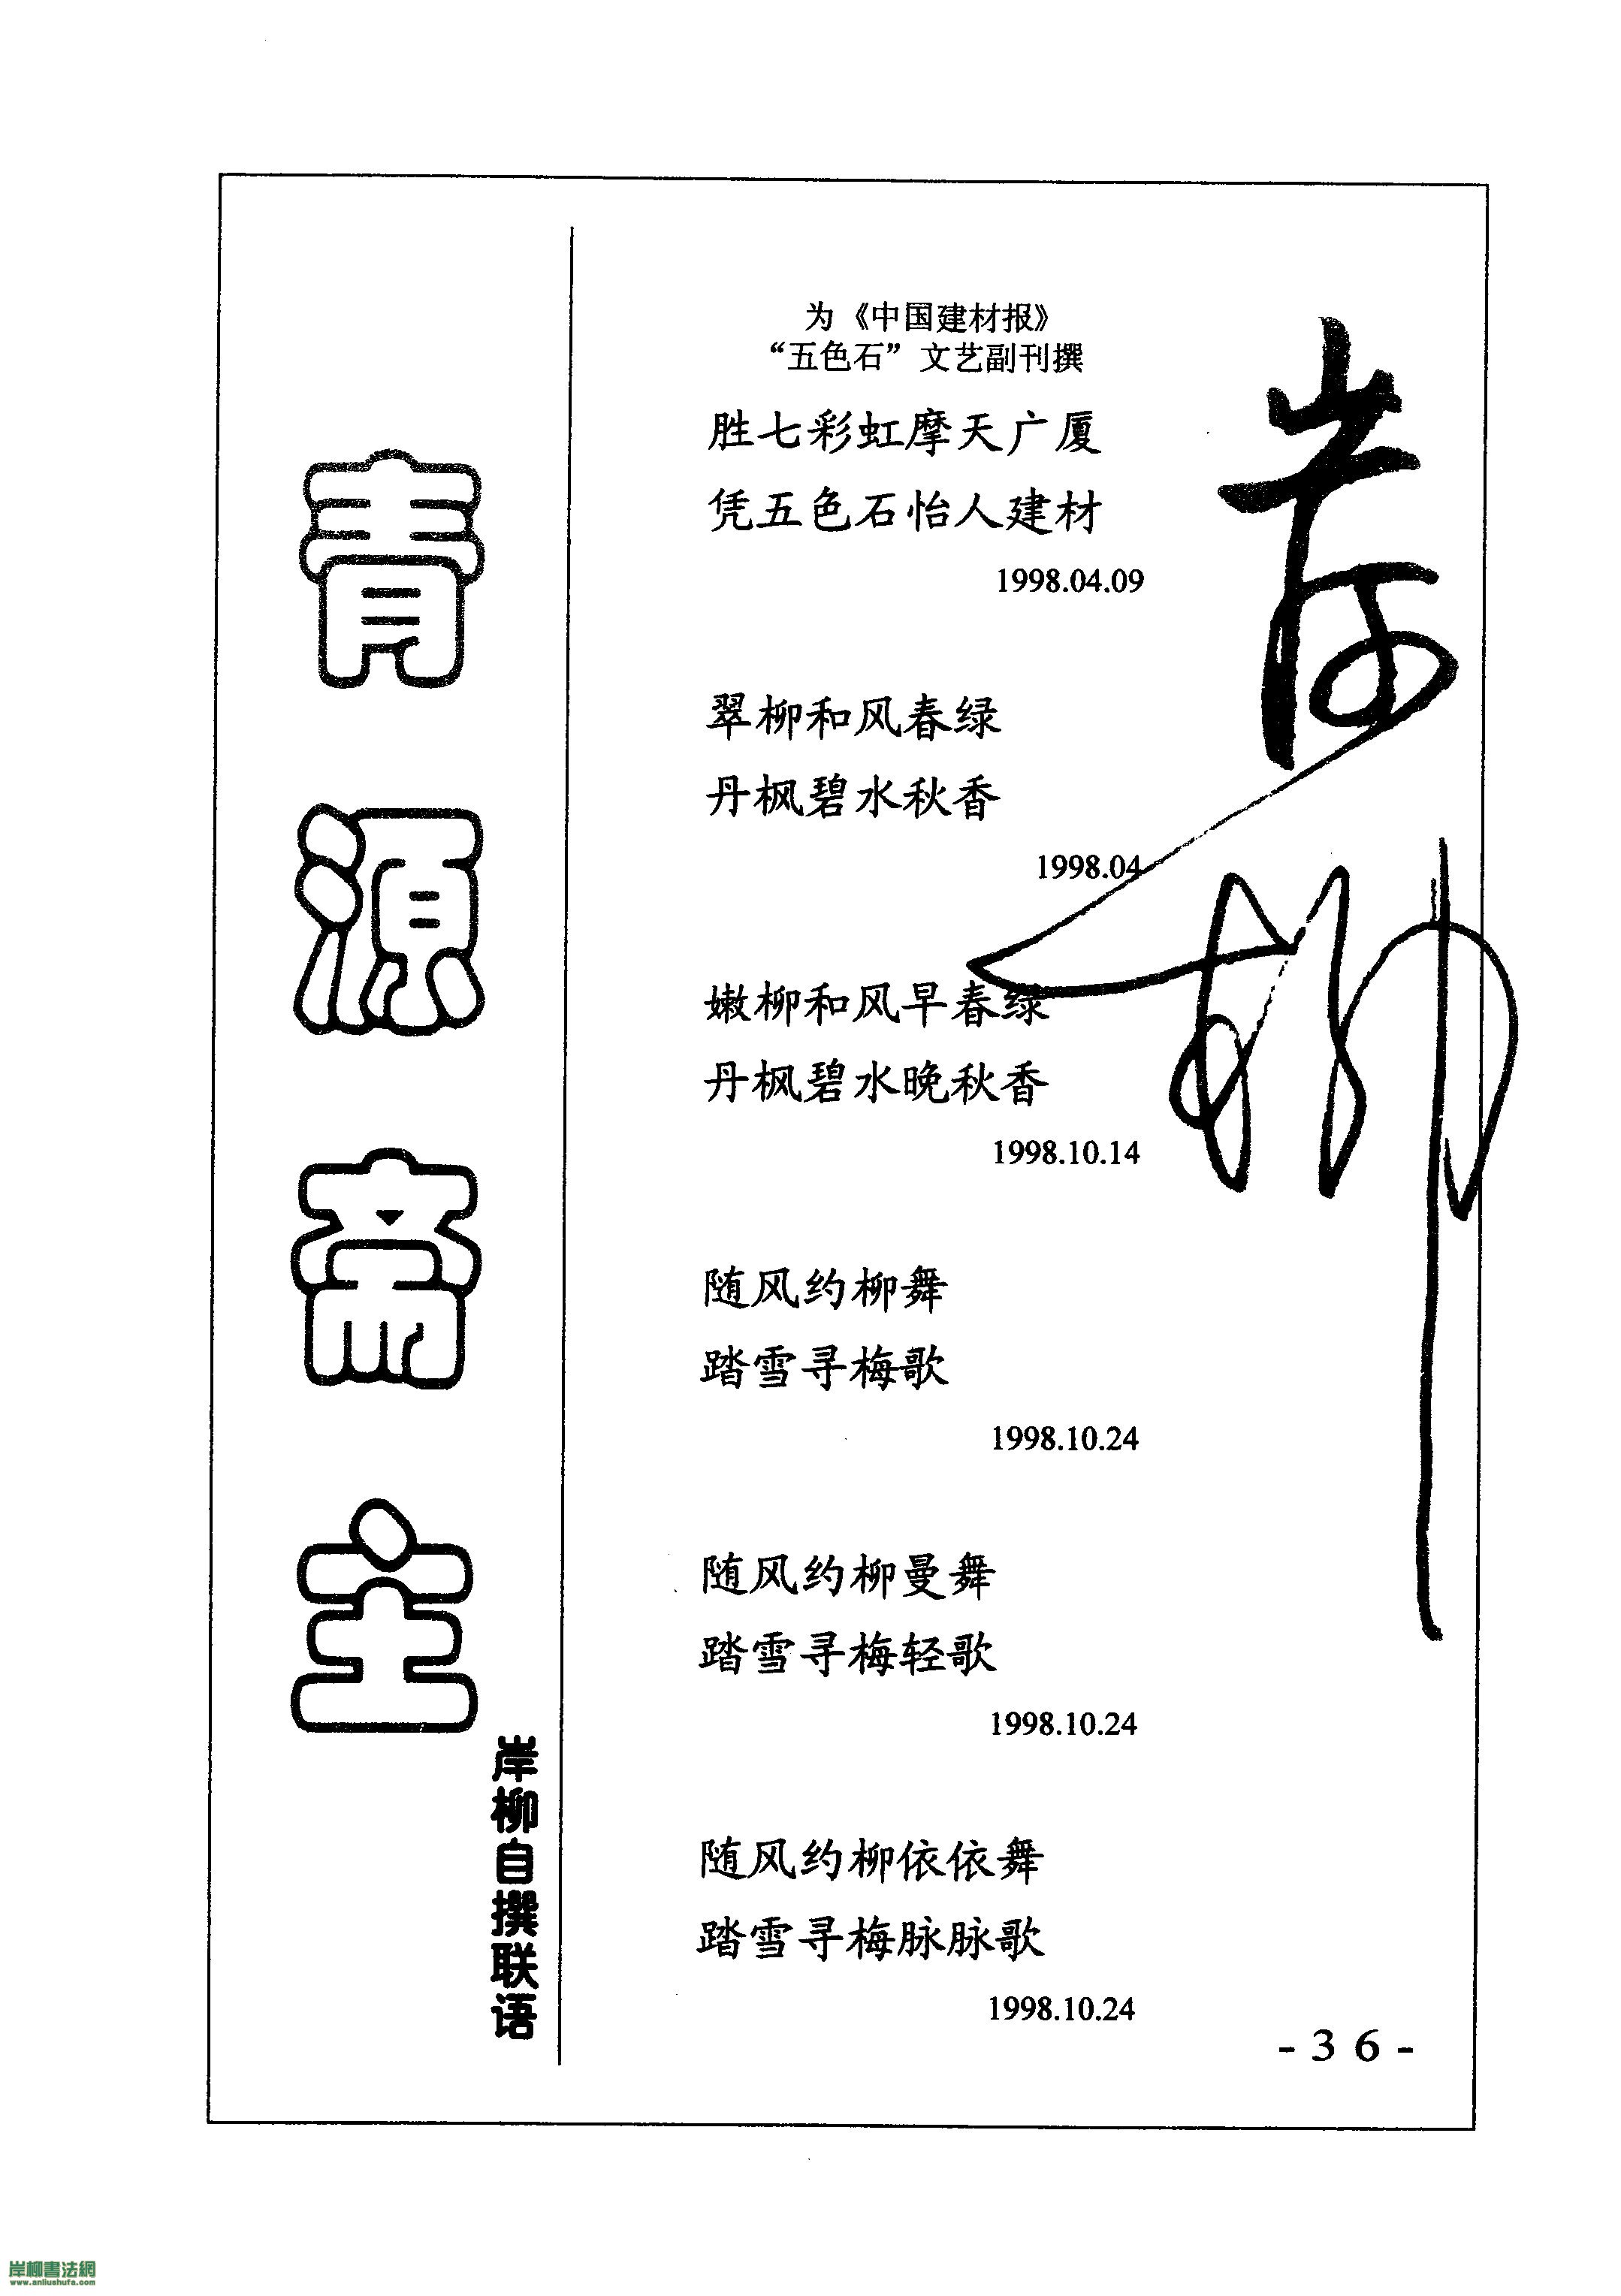 青源斋主
岸柳自撰联语
为《中国建材报》
“五色石”文艺副刊撰
胜七彩虹摩天广厦
凭五色石怡人建材
1998.04.09
翠柳和风春绿
丹枫碧水秋香
1998.04
嫩柳和风早春绿
丹枫碧水晚秋香
1998.10.14
随风约柳舞
踏雪寻梅歌
1998.10.24
随风约柳曼舞
踏雪寻梅轻歌
1998.10.24
随风约柳依依舞
踏雪寻梅脉脉歌
1998.10.24
岸柳
-36-
岸柳書法網
www.anliushufa.com